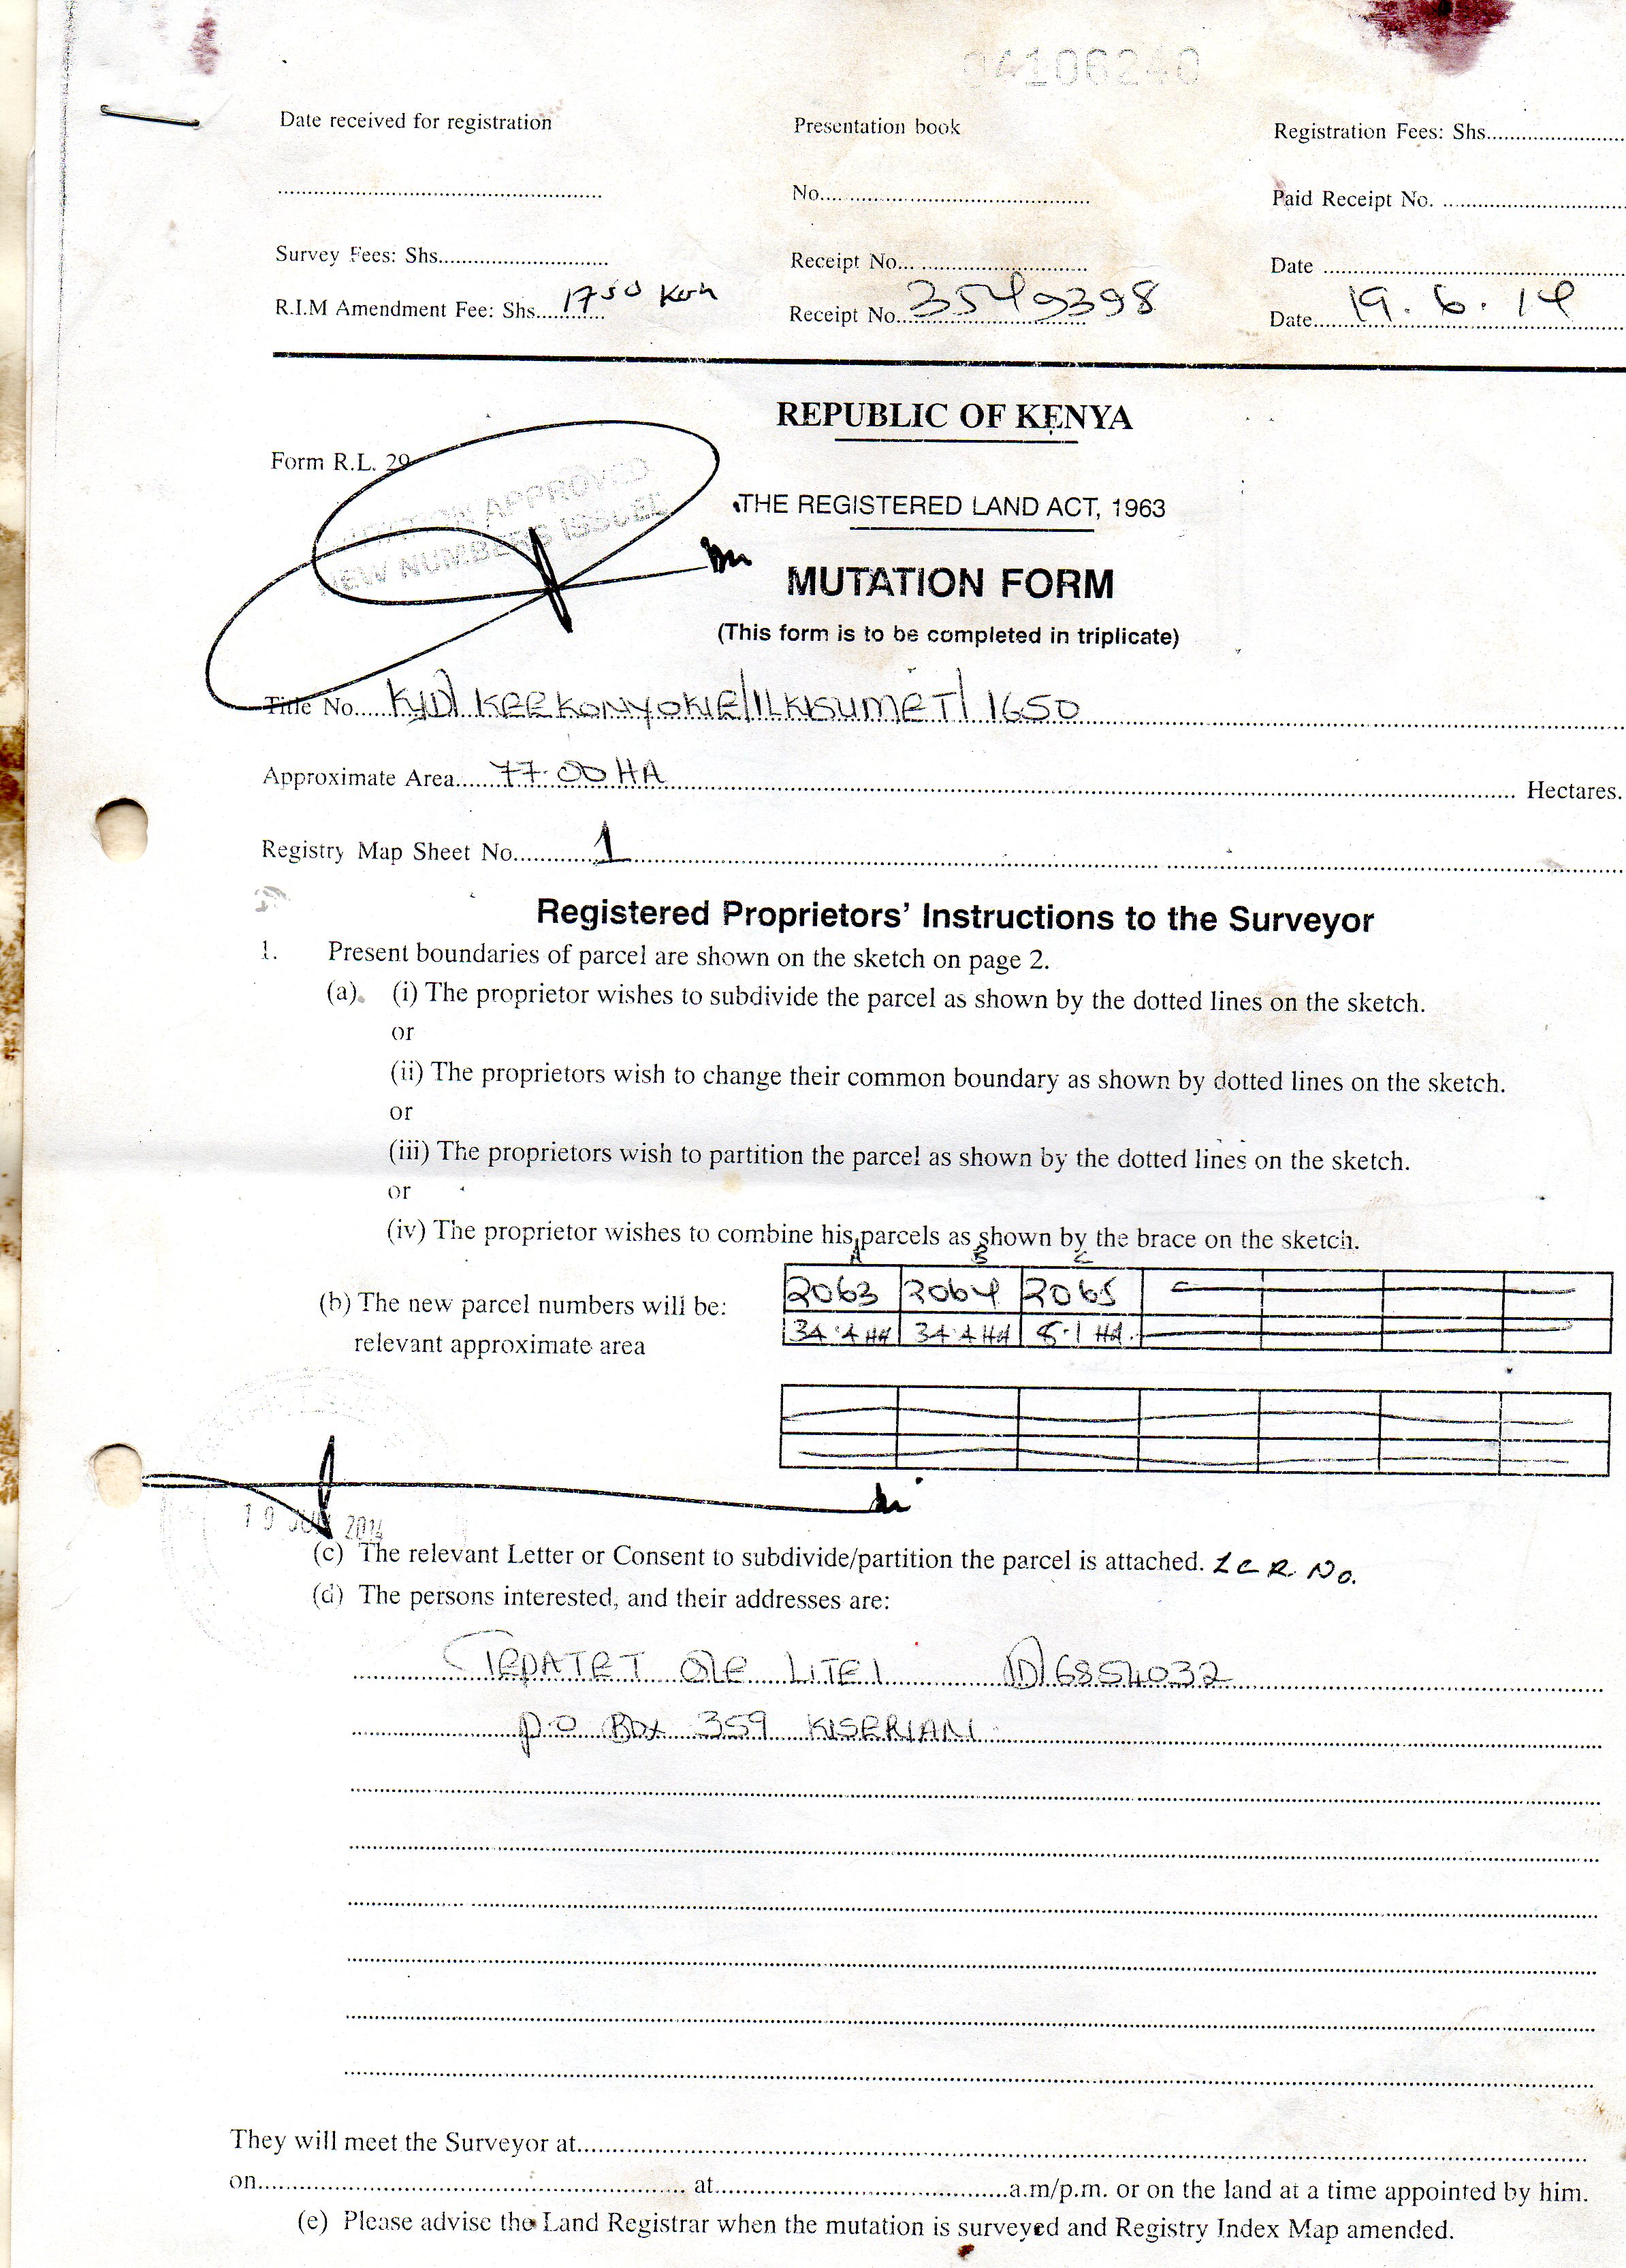 04106240
Date received for registration Presentation book Registration Fees: Shs..........
.......... No.......... Paid Receipt No. ..........
Survey Fees: Shs.......... Receipt No.......... Date ..........
R.I.M Amendment Fee: Shs....1750 Ksh Receipt No...3549398 Date....19.6.14
REPUBLIC OF KENYA
Form R.L. 29
APPROVED
NEW NUMBERS ISSUED
THE REGISTERED LAND ACT, 1963
MUTATION FORM
(This form is to be completed in triplicate)
Title No....KJD/KEEKONYOKIE/ILKISUMET/1650
Approximate Area....77.00 HA .......... Hectares.
Registry Map Sheet No..........1
Registered Proprietors' Instructions to the Surveyor
1. Present boundaries of parcel are shown on the sketch on page 2.
(a). (i) The proprietor wishes to subdivide the parcel as shown by the dotted lines on the sketch.
or
(ii) The proprietors wish to change their common boundary as shown by dotted lines on the sketch.
or
(iii) The proprietors wish to partition the parcel as shown by the dotted lines on the sketch.
or
(iv) The proprietor wishes to combine his parcels as shown by the brace on the sketch.
A B C
(b) The new parcel numbers will be: 2063 2064 2065
relevant approximate area 34.4 HA 34.4 HA 8.1 HA.
19 JUN 2014
(c) The relevant Letter or Consent to subdivide/partition the parcel is attached. LCR. No.
(d) The persons interested, and their addresses are:
OLE LITEI ID/6854032
P.O BOX 359 KISERIAN
They will meet the Surveyor at..........
on.......... at..........a.m/p.m. or on the land at a time appointed by him.
(e) Please advise the Land Registrar when the mutation is surveyed and Registry Index Map amended.